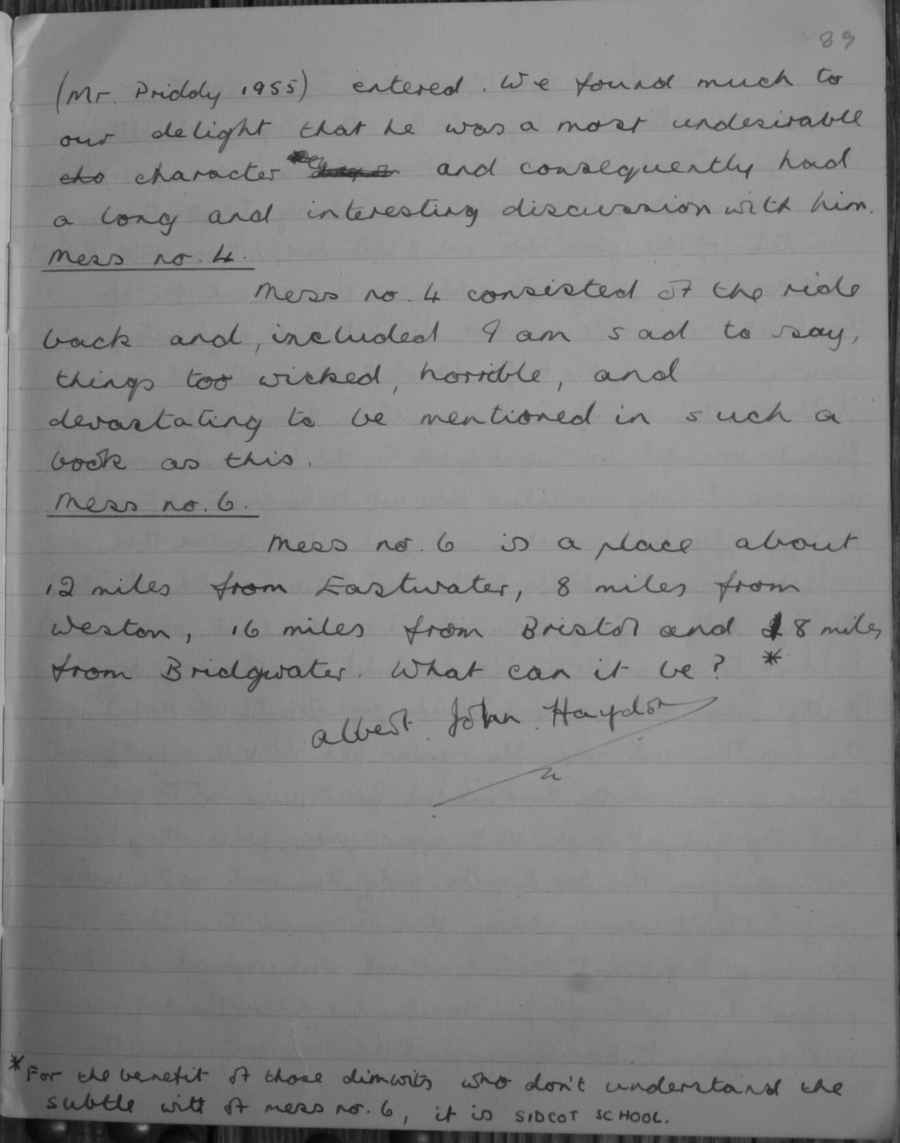 89
(Mr. Priddy 1955) entered. We found much to
our delight that he was a most undesirable
cho character and consequently had
a long and interesting discussion with him.
Mess no. 4.
Mess no. 4 consisted of the ride
back and, included I am sad to say,
things too wicked, horrible, and
devastating to be mentioned in such a
book as this.
Mess no. 6.
Mess no. 6 is a place about
12 miles from Eastwater, 8 miles from
Weston, 16 miles from Bristol and 18 miles
from Bridgwater. What can it be? *
Albert John Haydon
*For the benefit of those dimwits who don't understand the
subtle witt of mess no. 6, it is SIDCOT SCHOOL.